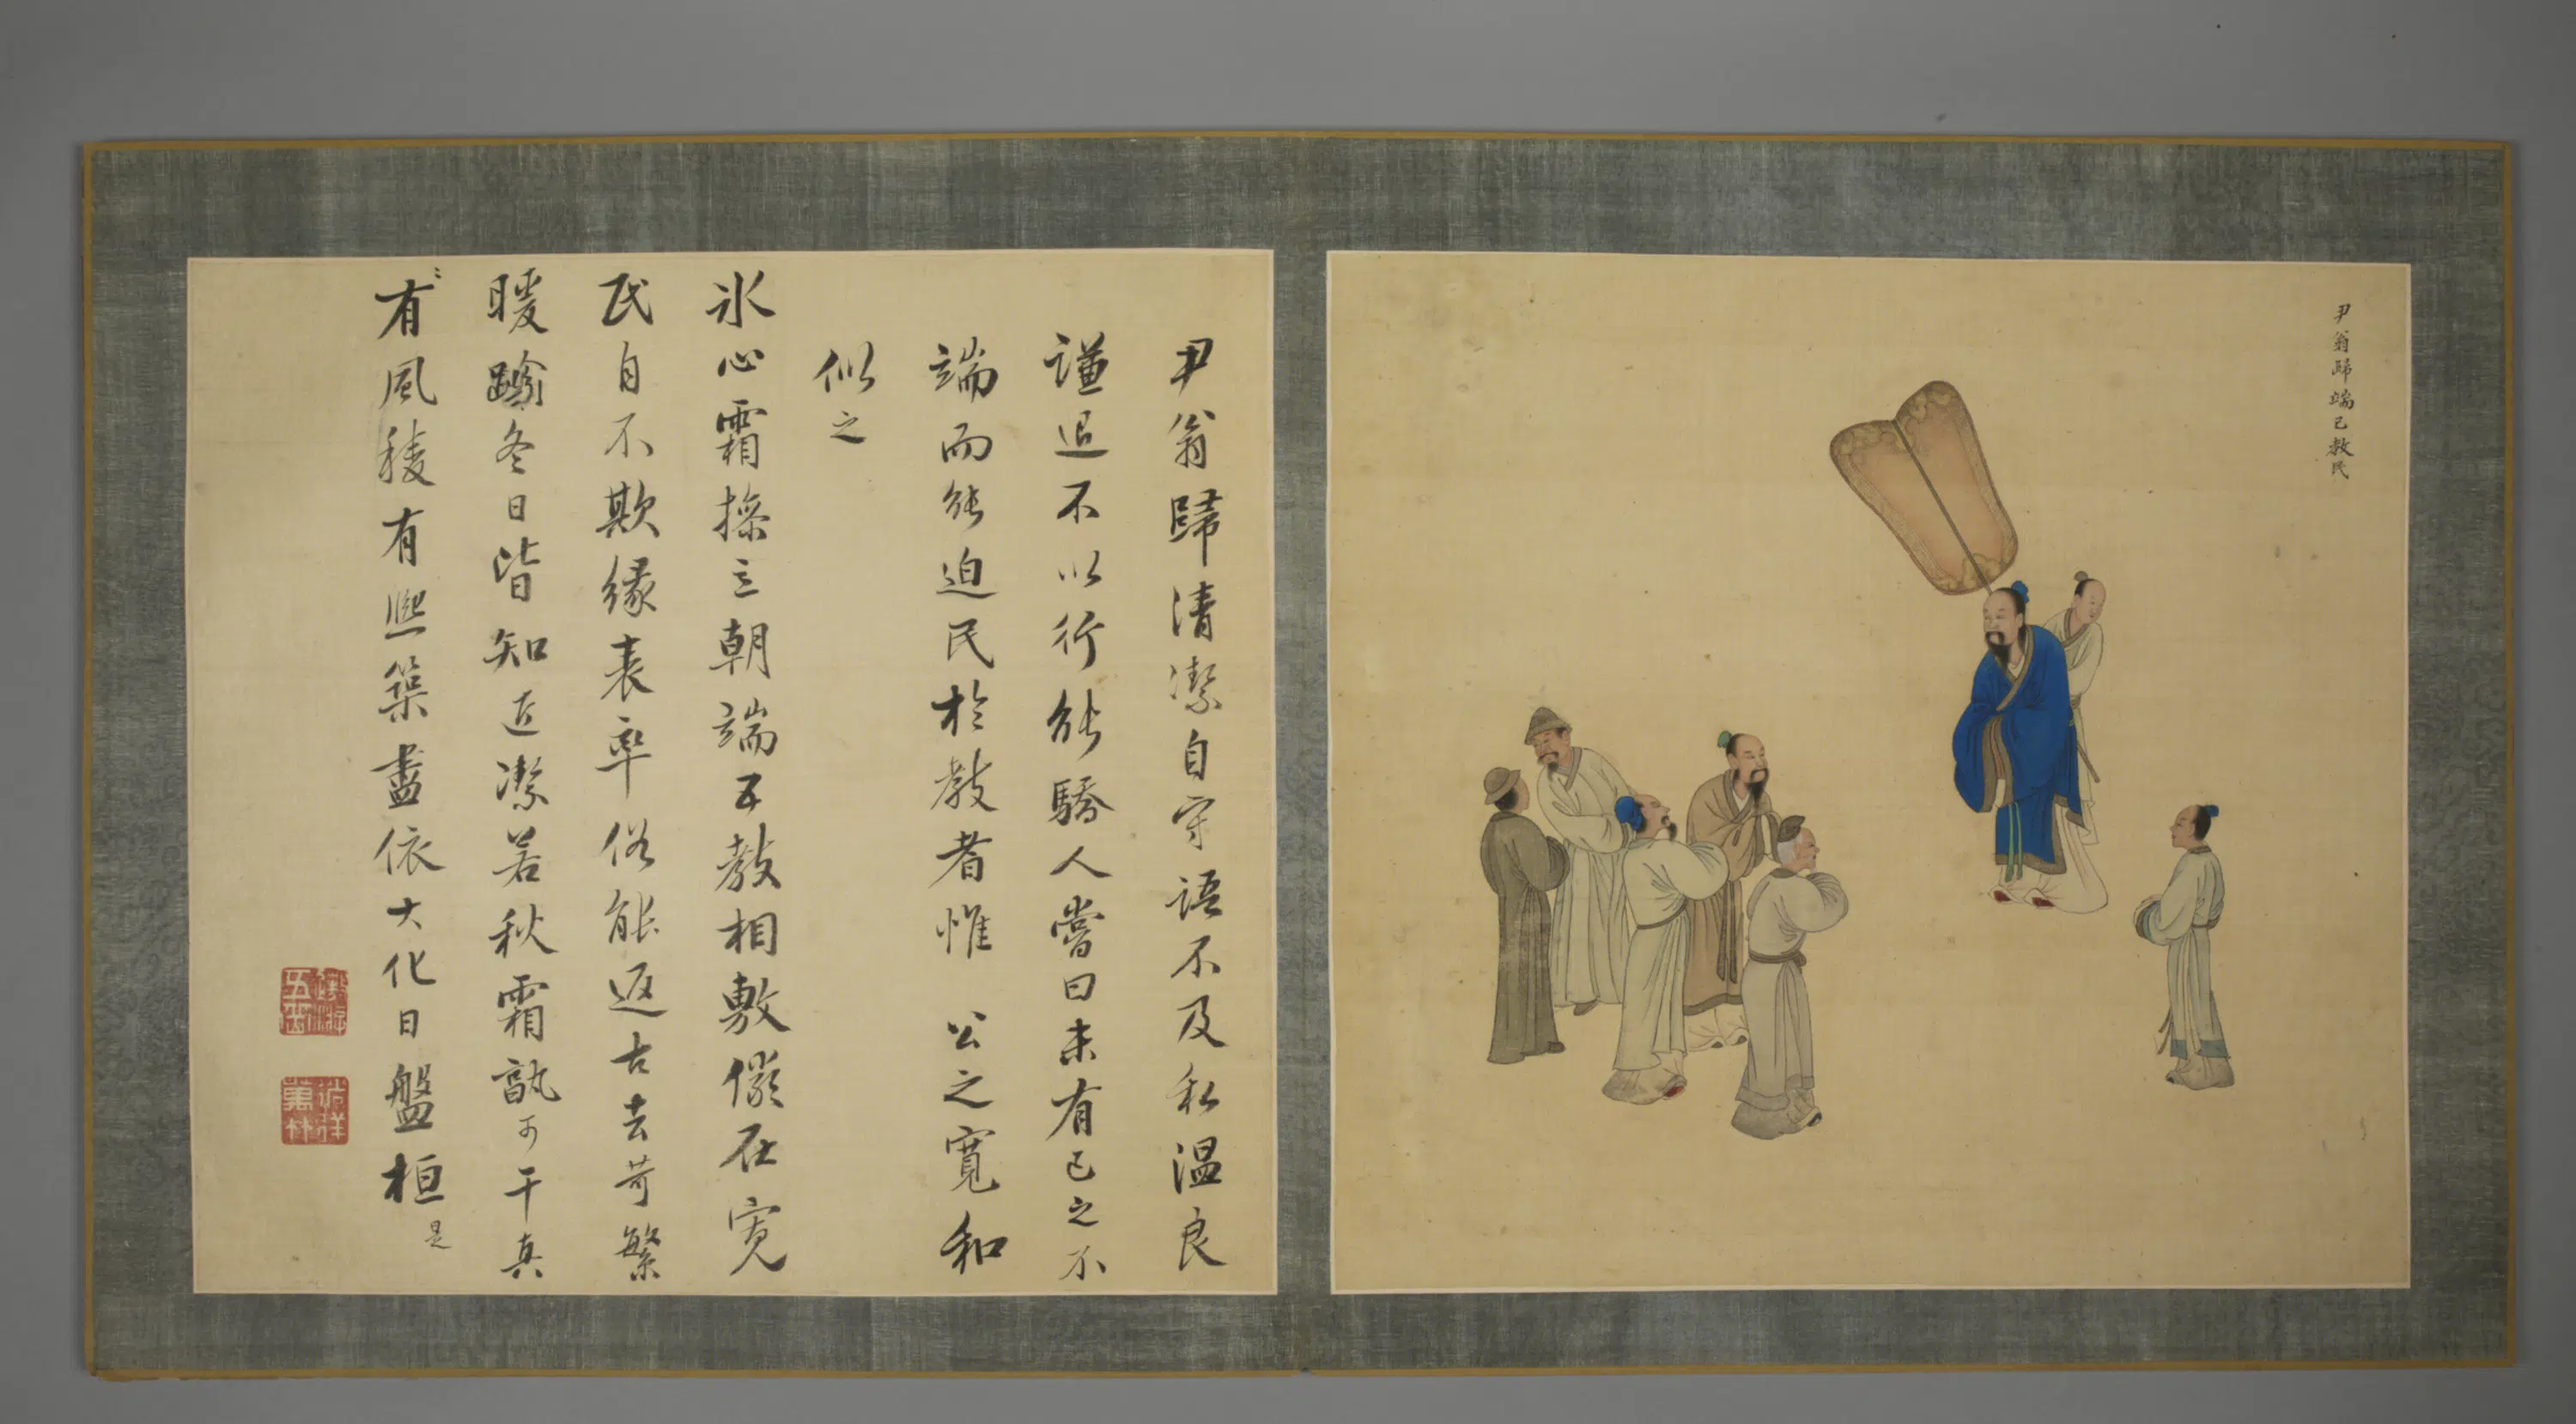 尹翁歸端己教民
尹翁歸清潔自守語不及私溫良
謙退不以行能驕人嘗曰未有己之不
端而能迫民於教者惟 公之寬和
似之
氷心霜操立朝端五教相敷儼在寬
民自不欺緣表率俗能返古去苛繁
暖踰冬日皆知近潔若秋霜孰可干真
有風稜有熙盡依大化日盤桓是